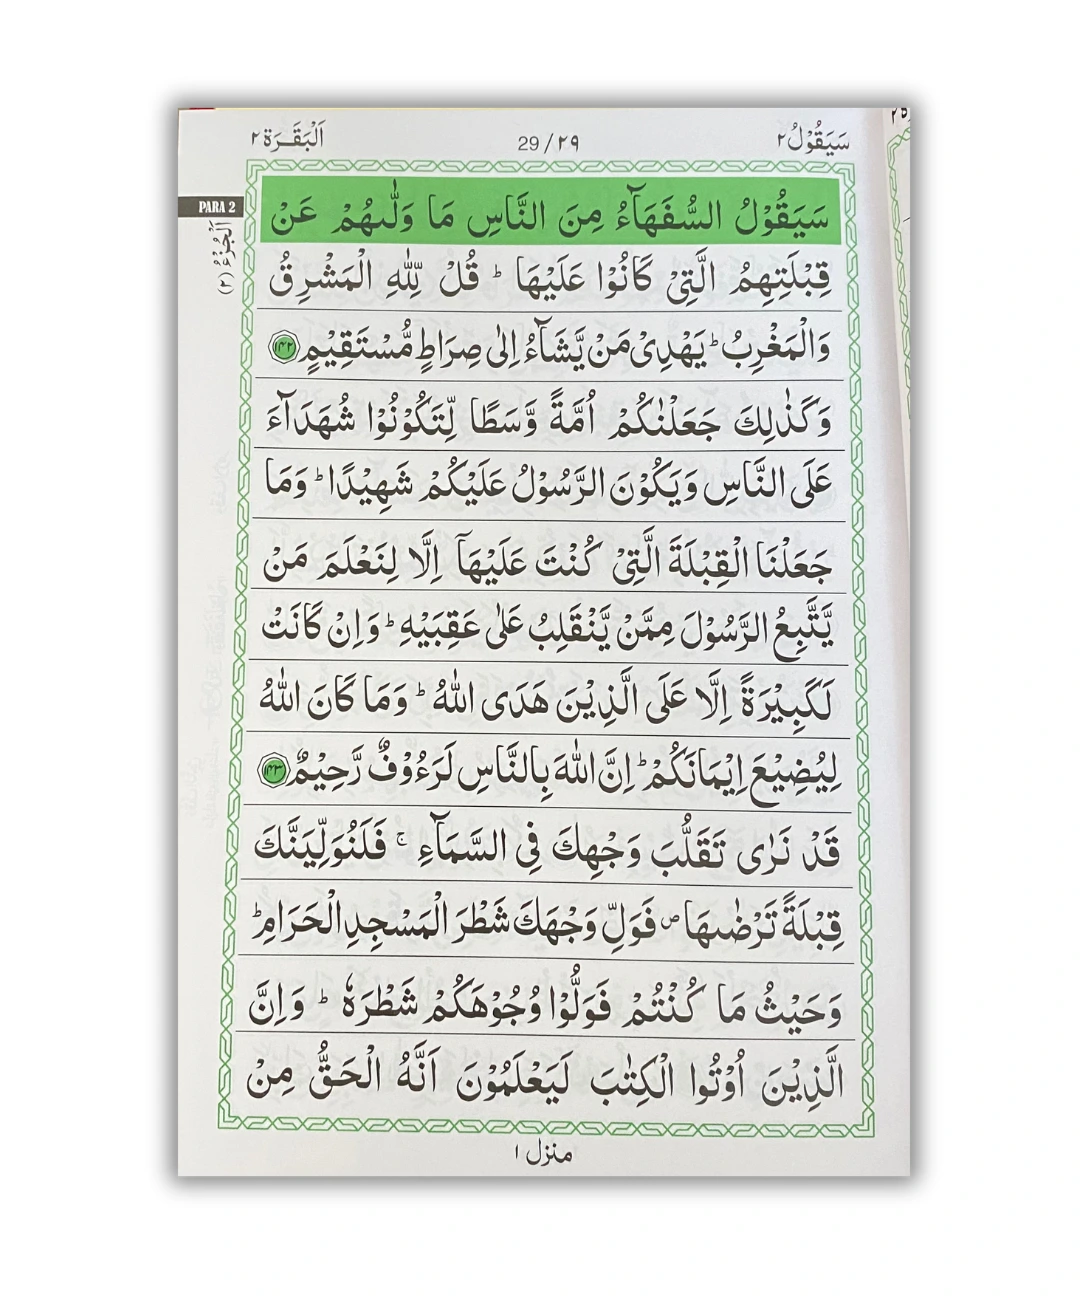 سَيَقُوْلُ٢
29/٢٩
اَلْبَقَـرَة٢
PARA 2
اَلْجُزْءُ (٢)
سَيَقُوْلُ السُّفَهَآءُ مِنَ النَّاسِ مَا وَلّٰىهُمْ عَنْ
قِبْلَتِهِمُ الَّتِىْ كَانُوْا عَلَيْهَا ؕ قُلْ لِّلّٰهِ الْمَشْرِقُ
وَالْمَغْرِبُ ؕ يَهْدِىْ مَنْ يَّشَآءُ اِلٰى صِرَاطٍ مُّسْتَقِيْمٍ ١٤٢
وَكَذٰلِكَ جَعَلْنٰكُمْ اُمَّةً وَّسَطًا لِّتَكُوْنُوْا شُهَدَآءَ
عَلَى النَّاسِ وَيَكُوْنَ الرَّسُوْلُ عَلَيْكُمْ شَهِيْدًا ؕ وَمَا
جَعَلْنَا الْقِبْلَةَ الَّتِىْ كُنْتَ عَلَيْهَاۤ اِلَّا لِنَعْلَمَ مَنْ
يَّتَّبِعُ الرَّسُوْلَ مِمَّنْ يَّنْقَلِبُ عَلٰى عَقِبَيْهِ ؕ وَاِنْ كَانَتْ
لَكَبِيْرَةً اِلَّا عَلَى الَّذِيْنَ هَدَى اللّٰهُ ؕ وَمَا كَانَ اللّٰهُ
لِيُضِيْعَ اِيْمَانَكُمْ ؕ اِنَّ اللّٰهَ بِالنَّاسِ لَرَءُوْفٌ رَّحِيْمٌ ١٤٣
قَدْ نَرٰى تَقَلُّبَ وَجْهِكَ فِى السَّمَآءِ ۚ فَلَنُوَلِّيَنَّكَ
قِبْلَةً تَرْضٰىهَا ۪ فَوَلِّ وَجْهَكَ شَطْرَ الْمَسْجِدِ الْحَرَامِ ؕ
وَحَيْثُ مَا كُنْتُمْ فَوَلُّوْا وُجُوْهَكُمْ شَطْرَهٗ ؕ وَاِنَّ
الَّذِيْنَ اُوْتُوا الْكِتٰبَ لَيَعْلَمُوْنَ اَنَّهُ الْحَقُّ مِنْ
منزل ١